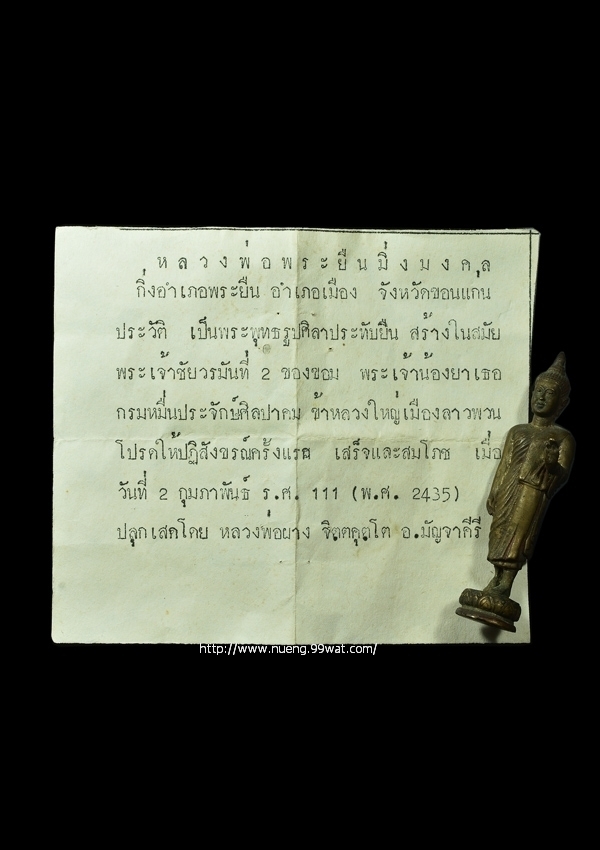 หลวงพ่อพระยืนมิ่งมงคล
กิ่งอำเภอพระยืน อำเภอเมือง จังหวัดขอนแก่น
ประวัติ เป็นพระพุทธรูปศิลาประทับยืน สร้างในสมัย
พระเจ้าชัยวรมันที่ 2 ของขอม พระเจ้าน้องยาเธอ
กรมหมื่นประจักษ์ศิลปาคม ข้าหลวงใหญ่เมืองลาวพวน
โปรดให้ปฏิสังขรณ์ครั้งแรก เสร็จและสมโภช เมื่อ
วันที่ 2 กุมภาพันธ์ ร.ศ. 111 (พ.ศ. 2435)
ปลุกเสกโดย หลวงพ่อผาง จิตตคุตโต อ.มัญจาคีรี
http://www.nueng.99wat.com/